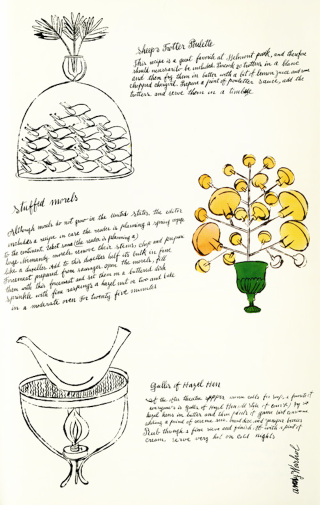 Sheep's Trotter Poulette
This recipe is a great favorite at Belmont park, and therefore
should necessarily be included. Cook 20 trotters in a blanc
and them fry them in butter with a bit of lemon juice and some
chopped chervil. Prepare a pint of poulette sauce, add the
trotters and serve them in a timbale
Stuffed morels
Although morels do not grow in the United States, the editor
includes a recipe in case the reader is planning a spring voyage
to the continent. Select some (the reader is planning a)
large. morels, remove their stems chop and prepare
like a duxelles. Add to this duxelles half its bulk in fine
forcemeat prepared from sausages. Open the morels, fill
them with this forcemeat and set them on a buttered dish
sprinkle with fine raspings a hazel nut or two and bake
in a moderate oven for twenty five minutes
Gullet of Hazel Hen
At the after theatre supper when calls for soup, a favorite of
everyone's is Gullet of Hazel Hen.
hazel hens in butter and
adding a of bread and juniper berries
Rub through a fine sieve and finish it with a pint of
cream, serve very hot on cold nights
Andy Warhol